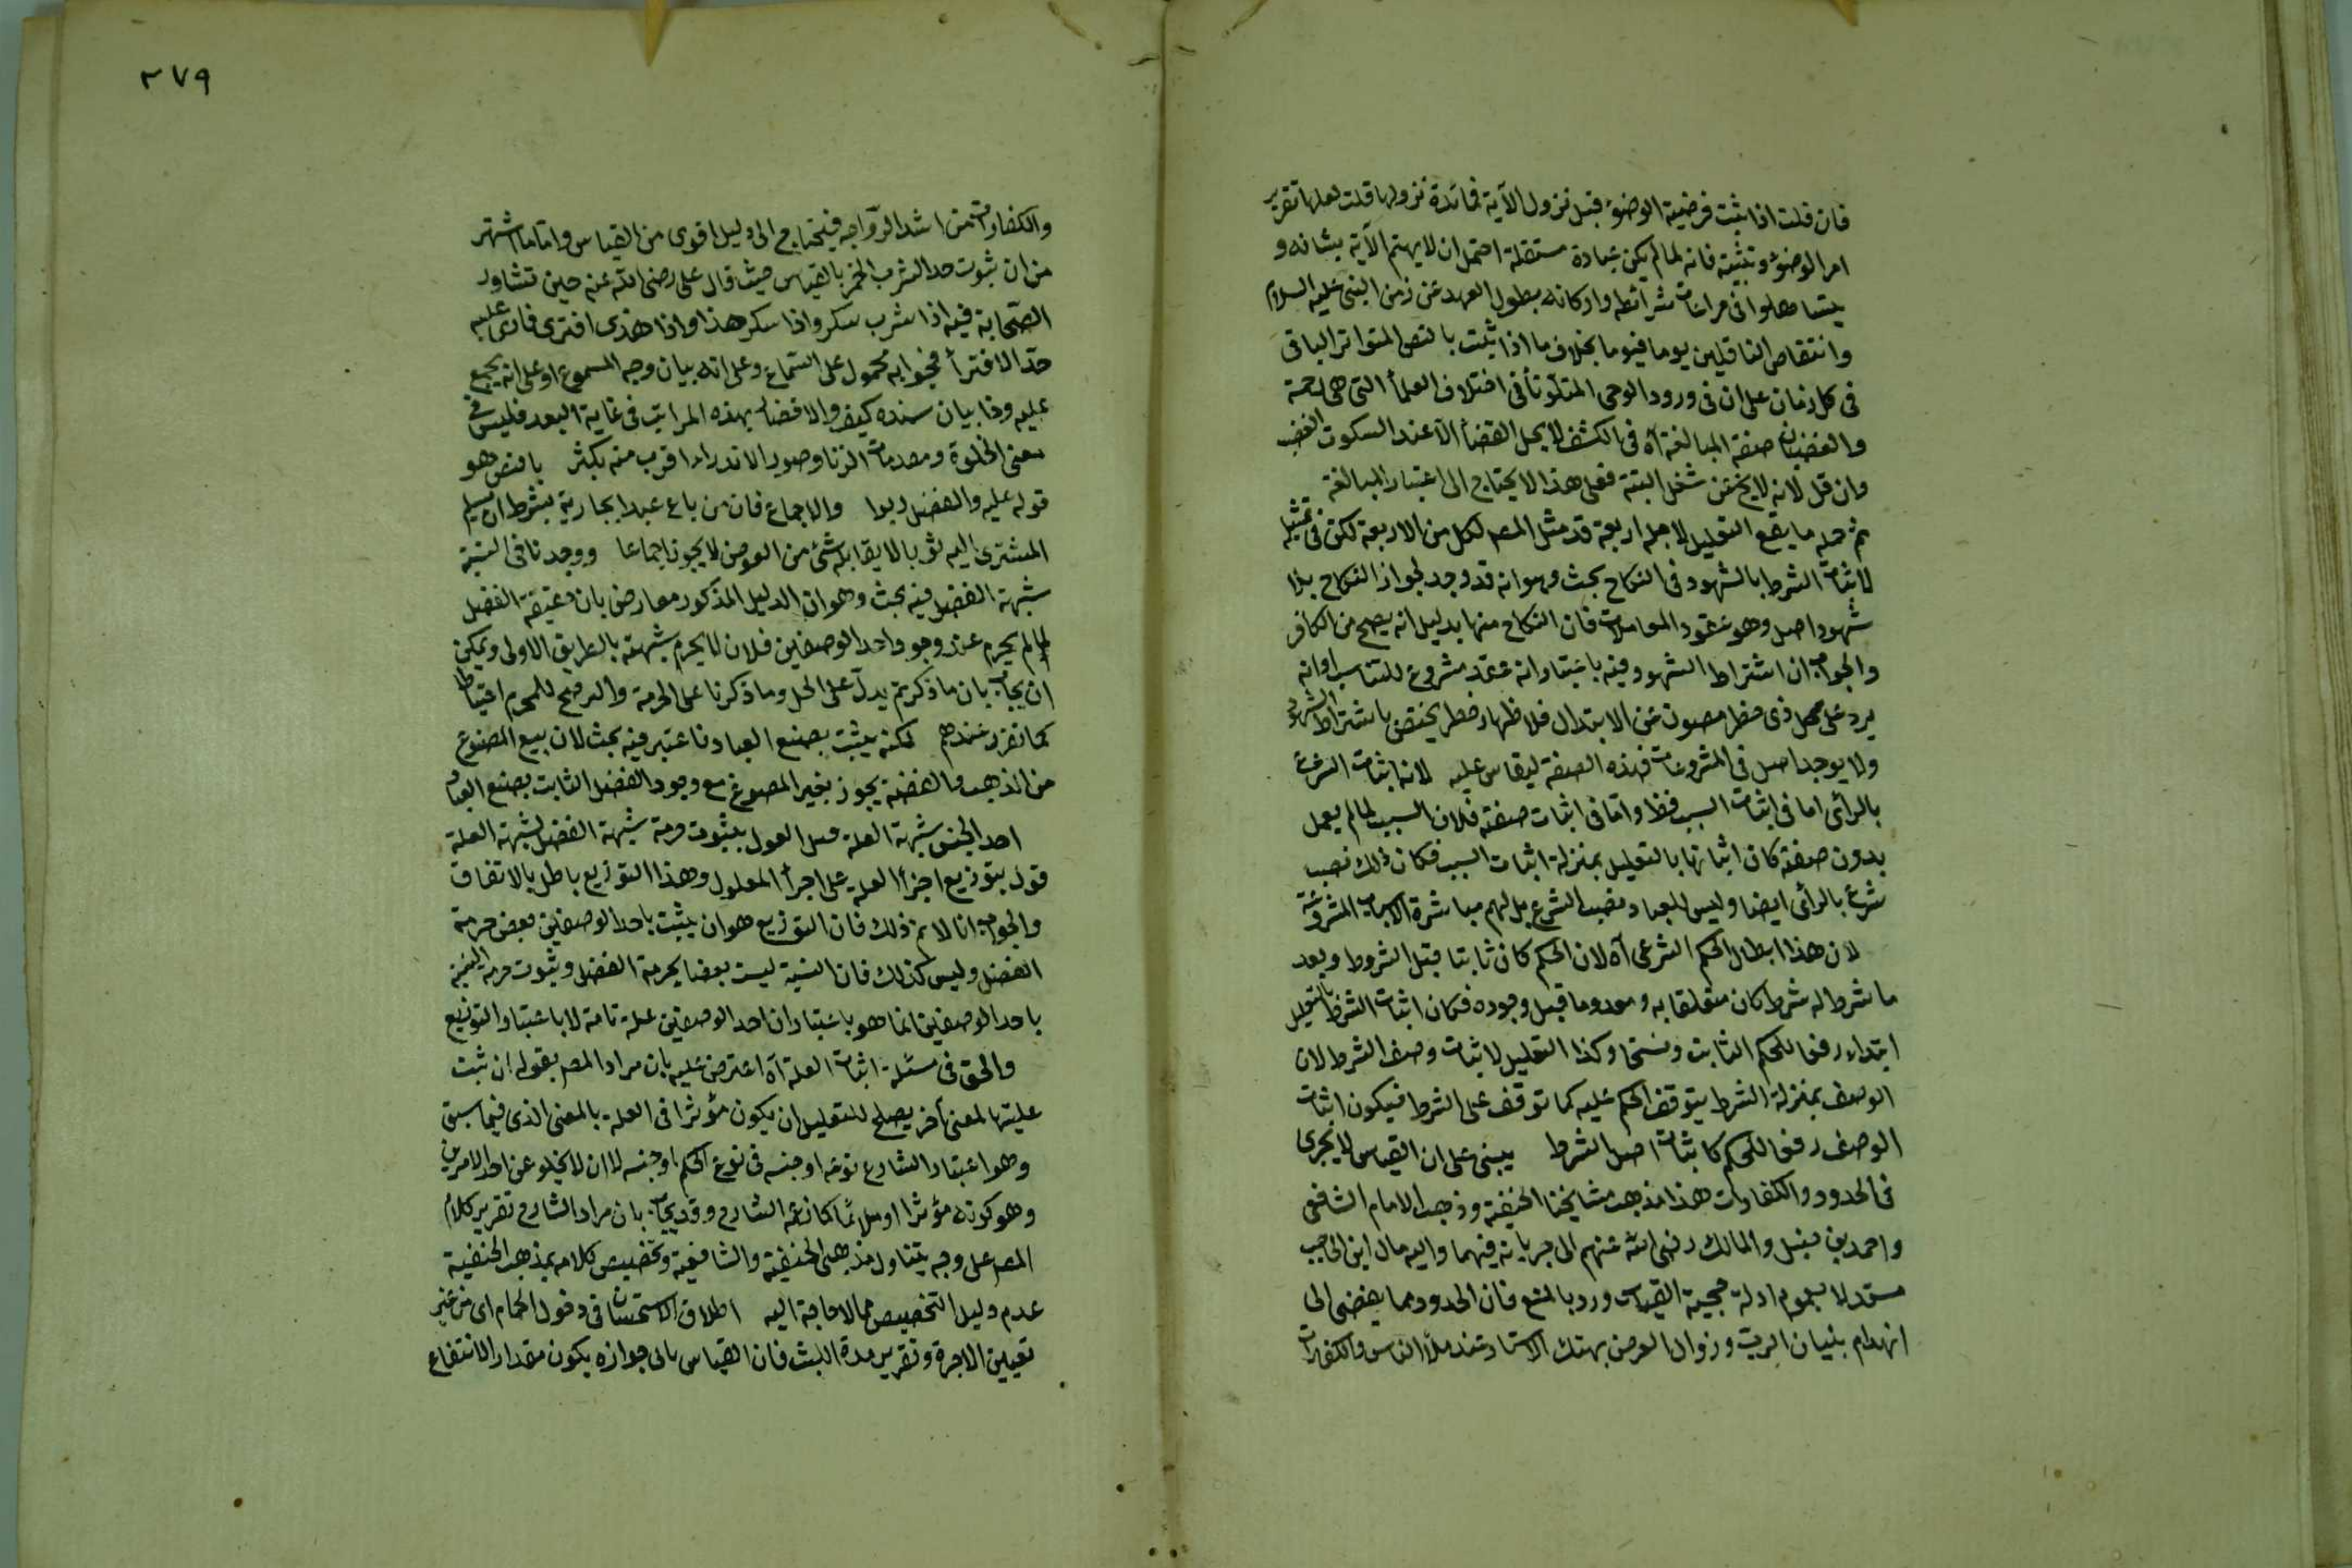 فان قلت اذا ثبت فرضية الوضوء قبل نزول الآية فما فائدة نزولها قلت لعلها تقرير
امر الوضوء وتثبيته فانه لما لم يكن عبادة مستقلة احتمل ان لا يهتم الآية بشانه و
يتساهلوا فى مراعات شرائطه واركانه بطول العهد عن زمن النبى عليه السلام
وانتقاص الناقلين يوما فيوما بخلاف ما اذا ثبت بالنص المتواتر الباقى
فى كل زمان على ان فى ورود الوحى المتلو تأتى اختلاف العلمأ التى هى رحمة
والغضبان صفة المبالغة آه فى الكشف لا يحل القضأ الا عند السكوت الغضب
وان قل لانه لا يخ عن شغل البتة فعلى هذا لا يحتاج الى اعتبار المبالغة
ثم جملة ما يقع التعليل لاجله اربعة قد مثل المص لكل من الاربعة لكن فى تمثيله
لاثبات الشرط بالشهود فى النكاح بحث وهو انه قد وجد لجواز النكاح بلا
شهود اصل وهو عقود المعاملات فان النكاح منها بدليل انه يصح من الكافر
والجواب ان اشتراط الشهود فيه باعتبار انه عقد مشروع للتناسل وانه
يرد على محل ذى خطر مصون عن الابتذال فلاظهار خطر يختص باشتراط الشهود
ولا يوجد اصل فى المشروعات بهذه الصفة ليقاس عليه لانه اثبات الشرع
بالرأى اما فى اثبات السبب فظ واما فى اثبات صفته فلان السبب لما لم يعمل
بدون صفته كان اثباتها بالتعليل بمنزلة اثبات السبب فكان ذلك نصب
شرع بالرأى ايضا وليس للعباد نصب الشرع بل لهم مباشرة الاسباب المشروعة
لان هذا ابطال الحكم الشرعى آه لان الحكم كان ثابتا قبل الشروط وبعد
ما شرط له شرط كان متعلقا به ومعدوما قبل وجوده فكان اثبات الشرط بالتعليل
ابتداء رفعا للحكم الثابت ونسخا وكذا التعليل لاثبات وصف الشرط لان
الوصف بمنزلة الشرط يتوقف الحكم عليه كما توقف على الشرط فيكون اثبات
الوصف رفعا للحكم كاثبات اصل الشرط يبنى على ان القياس لا يجرى
فى الحدود والكفارات هذا مذهب مشايخنا الحنفية وذهب الامام الشافعى
واحمد بن حنبل والمالك رضى الله عنهم الى جريانه فيهما واليه مال ابن الحاجب
مستدلا بعموم ادلة حجية القياس ورد بالمنع فان الحدود مما يفضى الى
انهدام بنيان الرب وزوال العرض بهتك الاستار عند ملأ الناس والكفارات
٢٧٩
والكفارات من اشد الزواجر فيحتاج الى دليل اقوى من القياس واما ما اشتهر
من ان ثبوت حد الشرب الخمر بالقياس حيث قال على رضى الله عنه حين تشاور
الصحابة فيه اذا شرب سكر واذا سكر هذا واذا هذى افترى فارى عليه
حد الافترأ فجوابه محمول على السماع وعلى انه بيان وجه المسموع او على انه يجمع
عليه وذا بيان سنده كيف والافضأ بهذه المراتب فى غاية البعد فليس فى
معنى الخلوة ومقدمات الزنا وصور الاندراء اقرب منه بكثر بالنص هو
قوله عليه والفضل ربوا والاجماع فان من باع عبدا بجارية بشرط ان يسلم
المشترى اليه ثوبا لا يقابله شئ من العوض لا يجوز اجماعا ووجدنا فى النسية
شبهة الفضل فيه بحث وهو ان الدليل المذكور معارض بان حقيقة الفضل
لما لم يحرم عند وجود احد الوصفين فلان لا يحرم شبهته بالطريق الاولى ويمكن
ان يجاب بان ما ذكرتم يدل على الحل وما ذكرنا على الحرمة والترجيح للمحرم احتياطا
كما تقرر عندهم لكنه يثبت بصنع العباد فاعتبر فيه بحث لان بيع المصنوع
من الذهب والفضة يجوز بغير المصوغ مع وجود الفضل الثابت بصنع العباد
احد الجنس شبهة العلة قيل القول بثبوت حرمة شبهة الفضل لشبهة العلة
قول بتوزيع اجزأ العلة على اجزأ المعلول وهذا التوزيع باطل بالاتفاق
والجواب انا لا نم ذلك فان التوزيع هو ان يثبت باحد الوصفين بعض حرمة
الفضل وليس كذلك فان النسية ليست بعضا لحرمة الفضل وثبوت حرمة النسية
باحد الوصفين انما هو باعتبار ان احد الوصفين علة تامة لا باعتبار التوزيع
والحق فى مسئلة اثبات العلة آه اعترض عليه بان مراد المص بقوله ان ثبت
عليتها لمعنى آخر يصلح للتعليل ان يكون مؤثرا فى العلة بالمعنى الذى فيما سبق
وهو اعتبار الشارع نوعه او جنسه فى نوع الحكم او جنسه لا ان لا يخلو عن احد الامرين
وهو كونه مؤثرا او ملائما كما زعمه الشارح وقد يجاب بان مراد الشارح تقرير كلام
المص على وجه يتناول مذهبى الحنفية والشافعية وتخصيص كلامه بمذهب الحنفية
عدم دليل التخصيص مما لا حاجة اليه اطلاق الاستحسان فى دخول الحمام اى من غير
تعيين الاجرة وتقرير مدة اللبث فان القياس يابى جوازه يكون مقدار الانتفاع